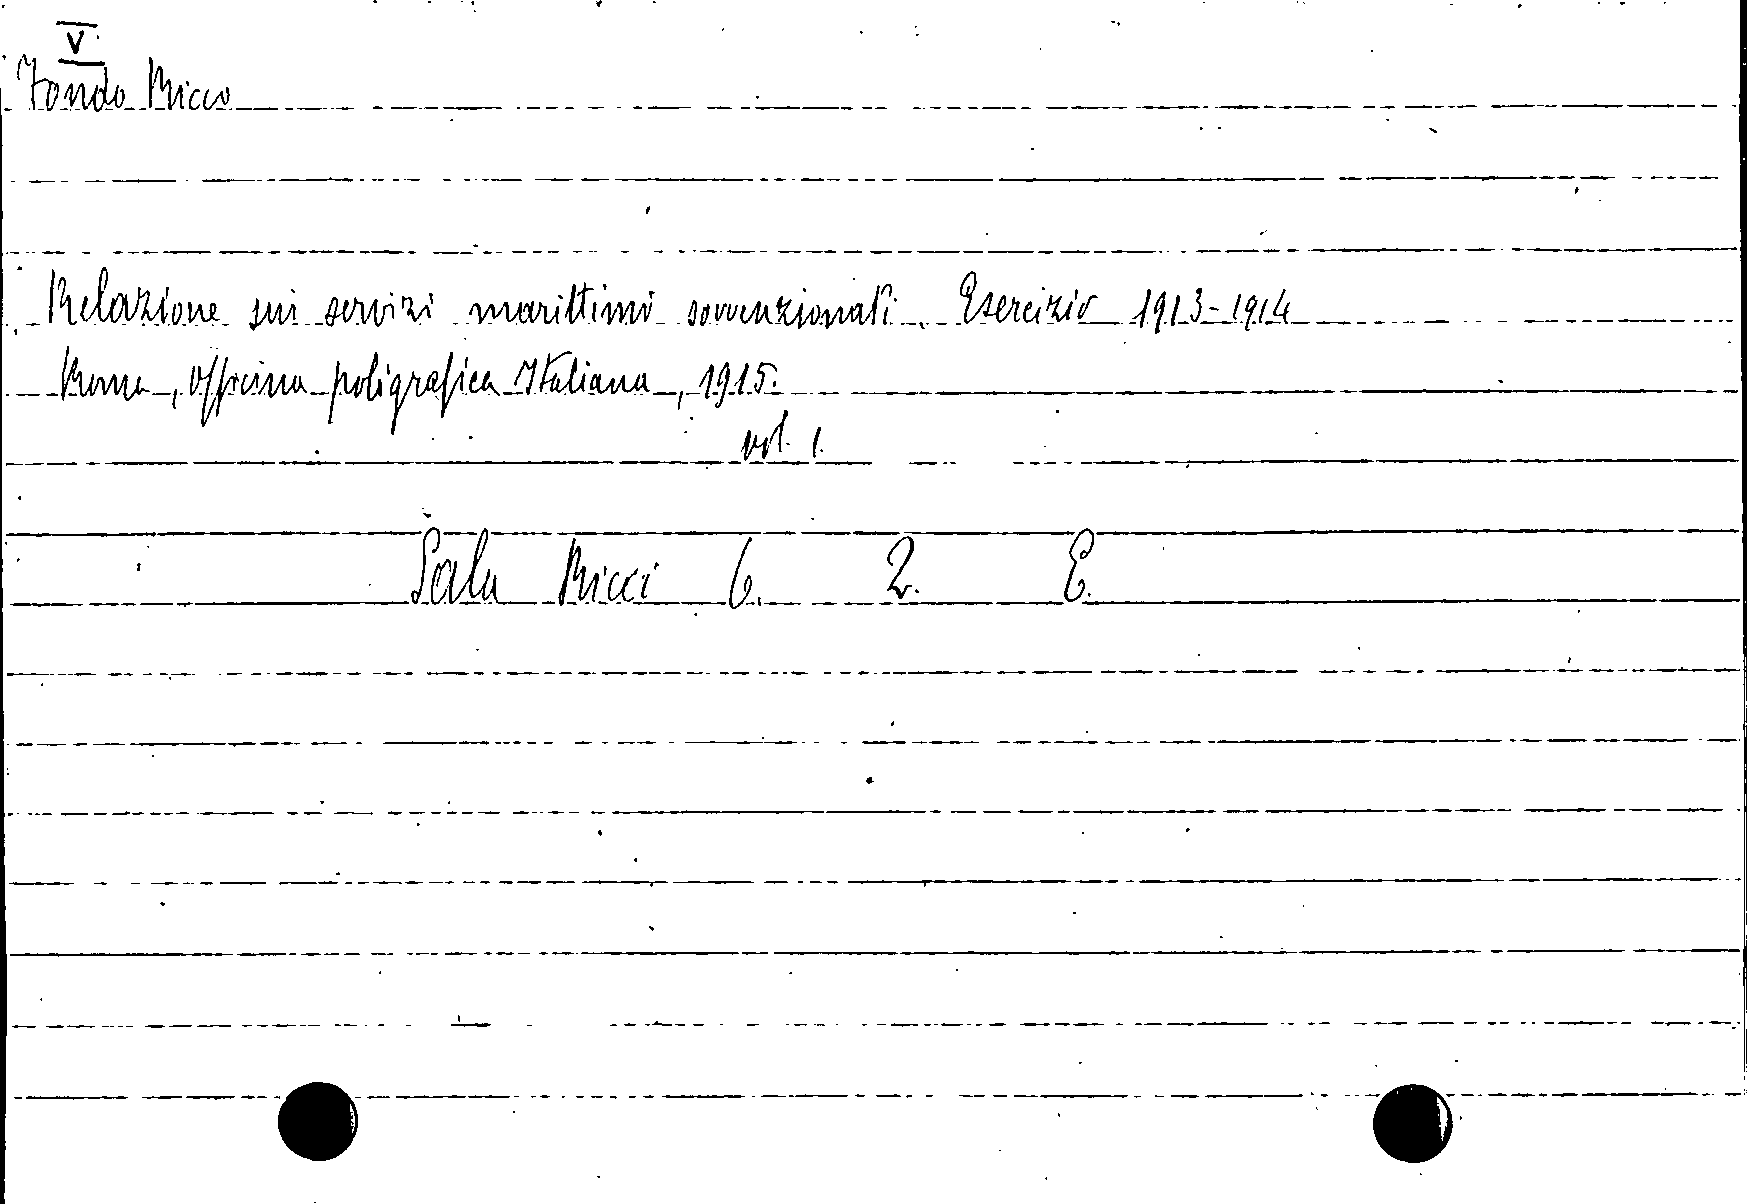 V
Fondo Ricco
Relazione sui servizi marittimi sovvenzionati. Esercizio 1913-1914
Roma, Officina poligrafica Italiana, 1915.
vol. 1.
Sala Ricci 6. 2. E.